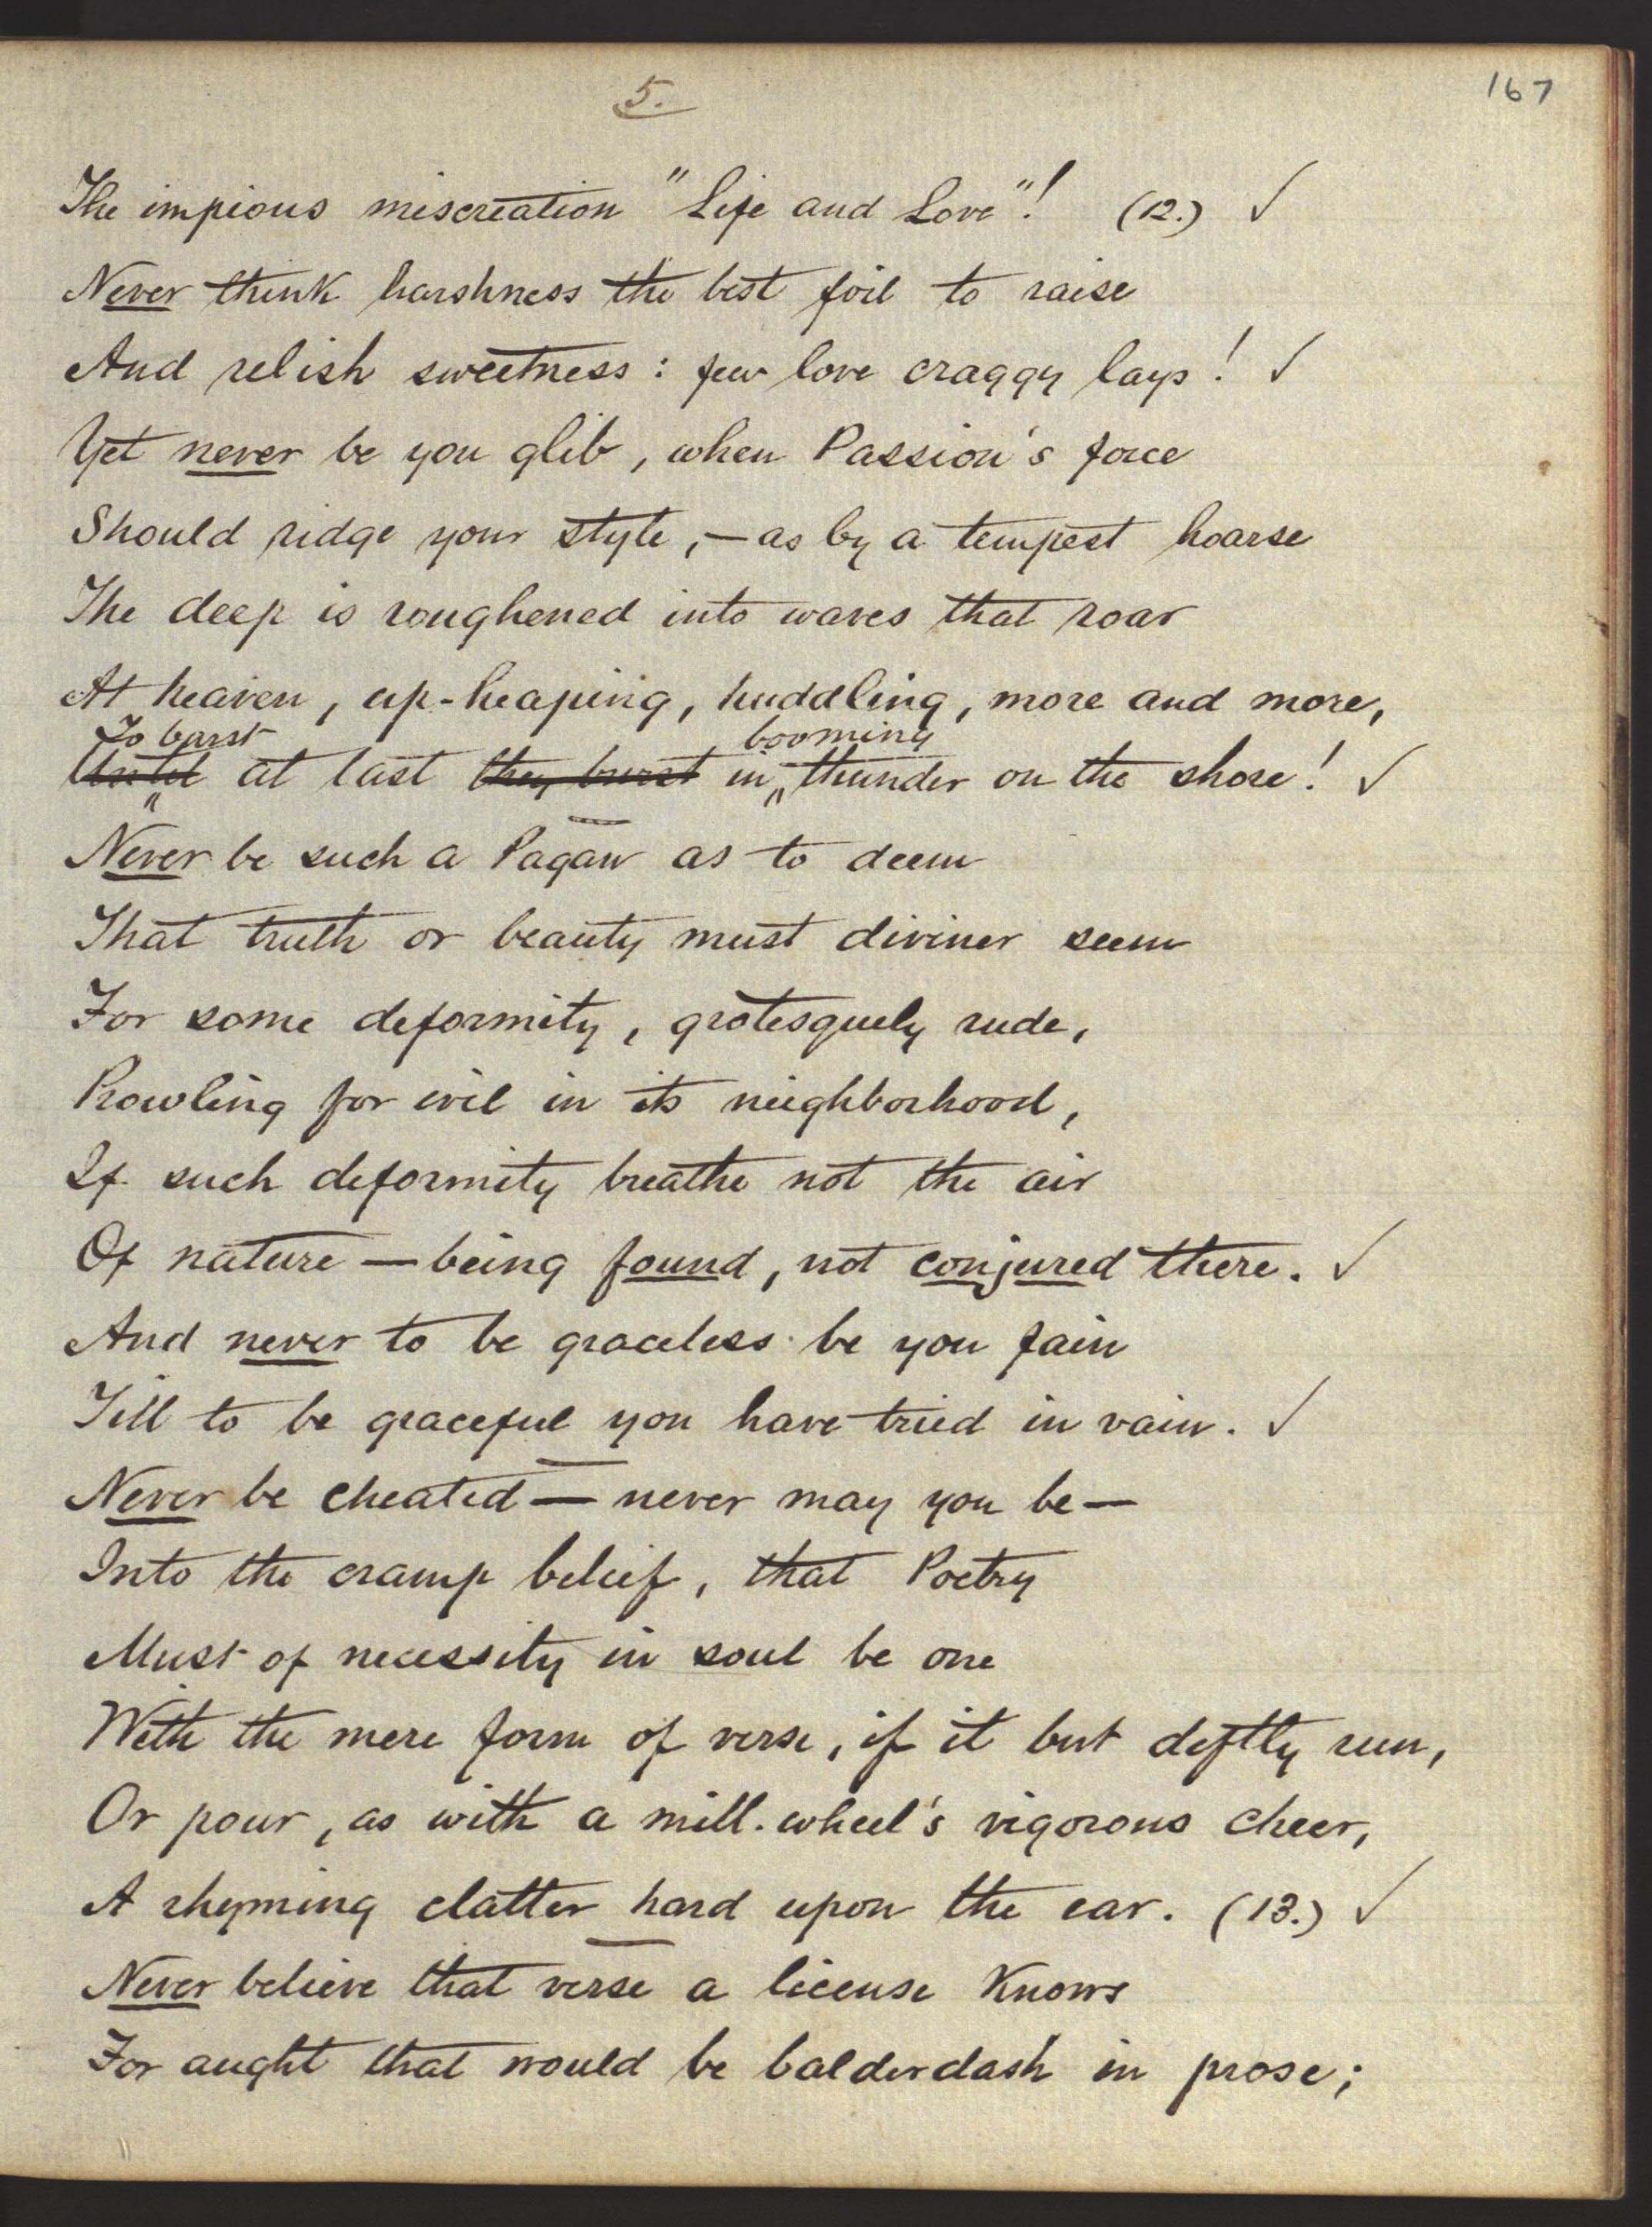 5.
167
The impious miscreation "Life and Love"! (12.) ✓
Never think harshness the best foil to raise
And relish sweetness: few love craggy lays! ✓
Yet never be you glib, when Passion's force
Should ridge your style,—as by a tempest hoarse
The deep is roughened into waves that roar
At heaven, up-heaping, huddling, more and more,
To burst booming
Until at last they burst in thunder on the shore! ✓
Never be such a Pagan as to deem
That truth or beauty must diviner seem
For some deformity, grotesquely rude,
Prowling for evil in its neighborhood,
If such deformity breathe not the air
Of nature—being found, not conjured there. ✓
And never to be graceless be you fain
Till to be graceful you have tried in vain. ✓
Never be cheated—never may you be—
Into the cramp belief, that Poetry
Must of necessity in soul be one
With the mere form of verse, if it but deftly run,
Or pour, as with a mill-wheel's vigorous cheer,
A rhyming clatter hard upon the ear. (13.) ✓
Never believe that verse a license knows
For aught that would be balderdash in prose;